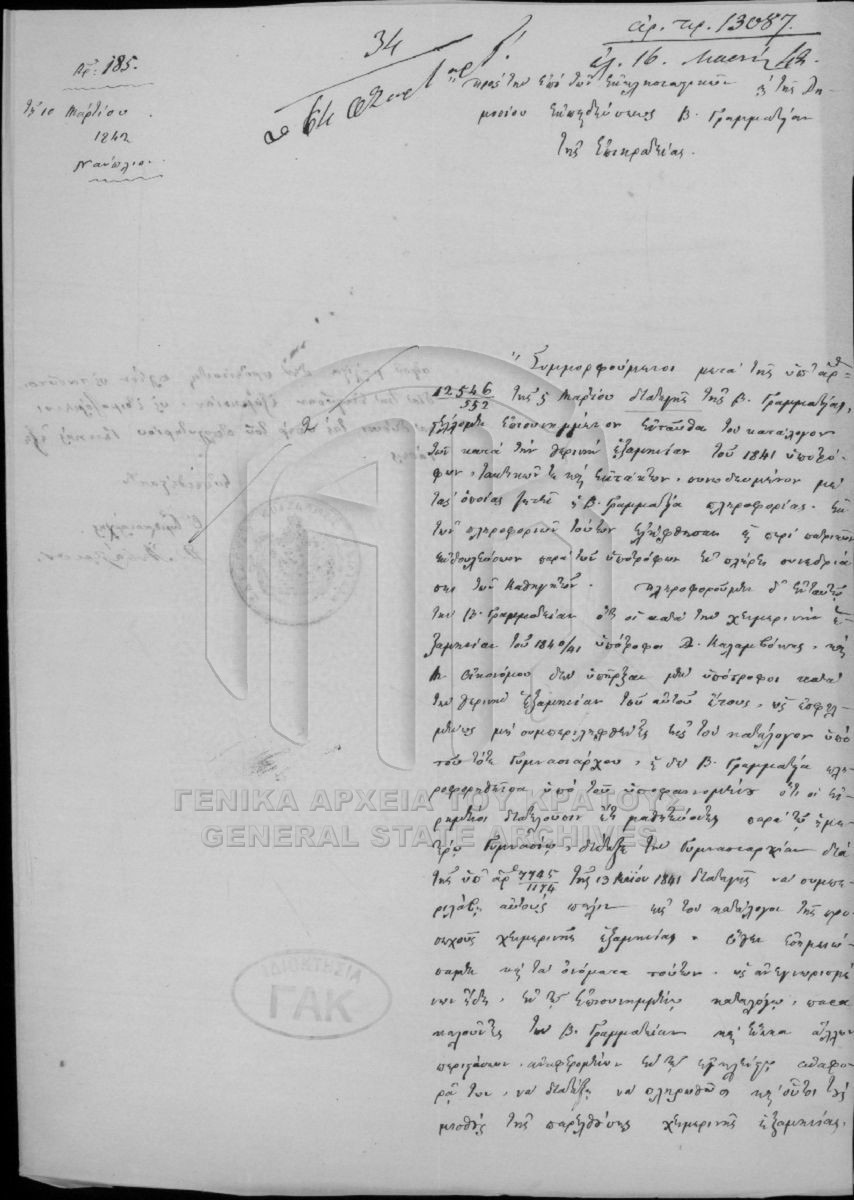 ἀρ. πρ. 13087.
34
Ἀρ: 185.
τῇ 10 Μαρτίου
1842
Ναύπλιον.
Πρὸς τὴν ἐπὶ τῶν Ἐκκλησιαστικῶν καὶ τῆς Δη-
μοσίου Ἐκπαιδεύσεως Β. Γραμματείαν
τῆς Ἐπικρατείας.
Συμμορφούμενοι μετὰ τῆς ὑπ' ἀρ:
12546/552 τῆς 5 Μαρτίου διαταγῆς τῆς Β. Γραμματείας,
ἐπισυνημμένον ἐνταῦθα τὸν κατάλογον
τῶν κατὰ τὴν θερινὴν ἑξαμηνίαν τοῦ 1841 ὑποτρό-
φων, τακτικῶν τε καὶ ἐκτάκτων, συνωδευμένον μὲ
τὰς ὁποίας ζητεῖ ἡ Β. Γραμματεία πληροφορίας. Ἐκ
τῶν πληροφοριῶν τούτων ἐλήφθησαν
παρὰ τῶν ὑποτρόφων ἐν πλήρει συνεδριά-
σει τῶν καθηγητῶν. Πληροφοροῦμεν δ' ἐνταυτῷ
τὴν Β. Γραμματείαν ὅτι οἱ κατὰ τὴν χειμερινὴν ἑ-
ξαμηνίαν τοῦ 1840/41 ὑπότροφοι Δ. Καλαμβόκης, καὶ
Α. Οἰκονόμου δὲν ὑπῆρξαν μὲν ὑπότροφοι κατὰ
τὴν θερινὴν ἑξαμηνίαν τοῦ αὐτοῦ ἔτους, ὡς ἐσφαλ-
μένως μὴ συμπεριληφθέντες εἰς τὸν κατάλογον ὑπὸ
τοῦ τότε Γυμνασιάρχου, ἡ δὲ Β. Γραμματεία πλη-
ροφορηθεῖσα ὑπὸ τοῦ ὑποφαινομένου ὅτι οἱ εἰ-
ρημένοι διατελοῦσιν ἔτι μαθητεύοντες παρὰ τῷ ἡμε-
τέρῳ Γυμνασίῳ, διέταξε τὴν Γυμνασιαρχίαν διὰ
τῆς ὑπ' ἀρ: 7745/1174 τῆς 13 Μαΐου 1841 διαταγῆς νὰ συμπε-
ριλάβῃ αὐτοὺς πάλιν εἰς τὸν κατάλογον τῆς προ-
σεχοῦς χειμερινῆς ἑξαμηνίας. Ὅθεν ἐσημειώ-
σαμεν καὶ τὰ ὀνόματα τούτων, ὡς ἀνεγνωρισμέ-
νων ἤδη, ἐν τῷ ἐπισυνημμένῳ καταλόγῳ, παρα-
καλοῦντες τὴν Β. Γραμματείαν καὶ ἕνεκα ἄλλων
περιστάσεων, ἀναφερομένων ἐν τῇ ἐγκλείστῳ ἀναφο-
ρᾷ των, νὰ διατάξῃ νὰ πληρωθῶσι καὶ οὗτοι τοὺς
μισθοὺς τῆς παρελθούσης χειμερινῆς ἑξαμηνίας.
ΓΕΝΙΚΑ ΑΡΧΕΙΑ ΤΟΥ ΚΡΑΤΟΥΣ
GENERAL STATE ARCHIVES
ΙΔΙΟΚΤΗΣΙΑ
ΓΑΚ